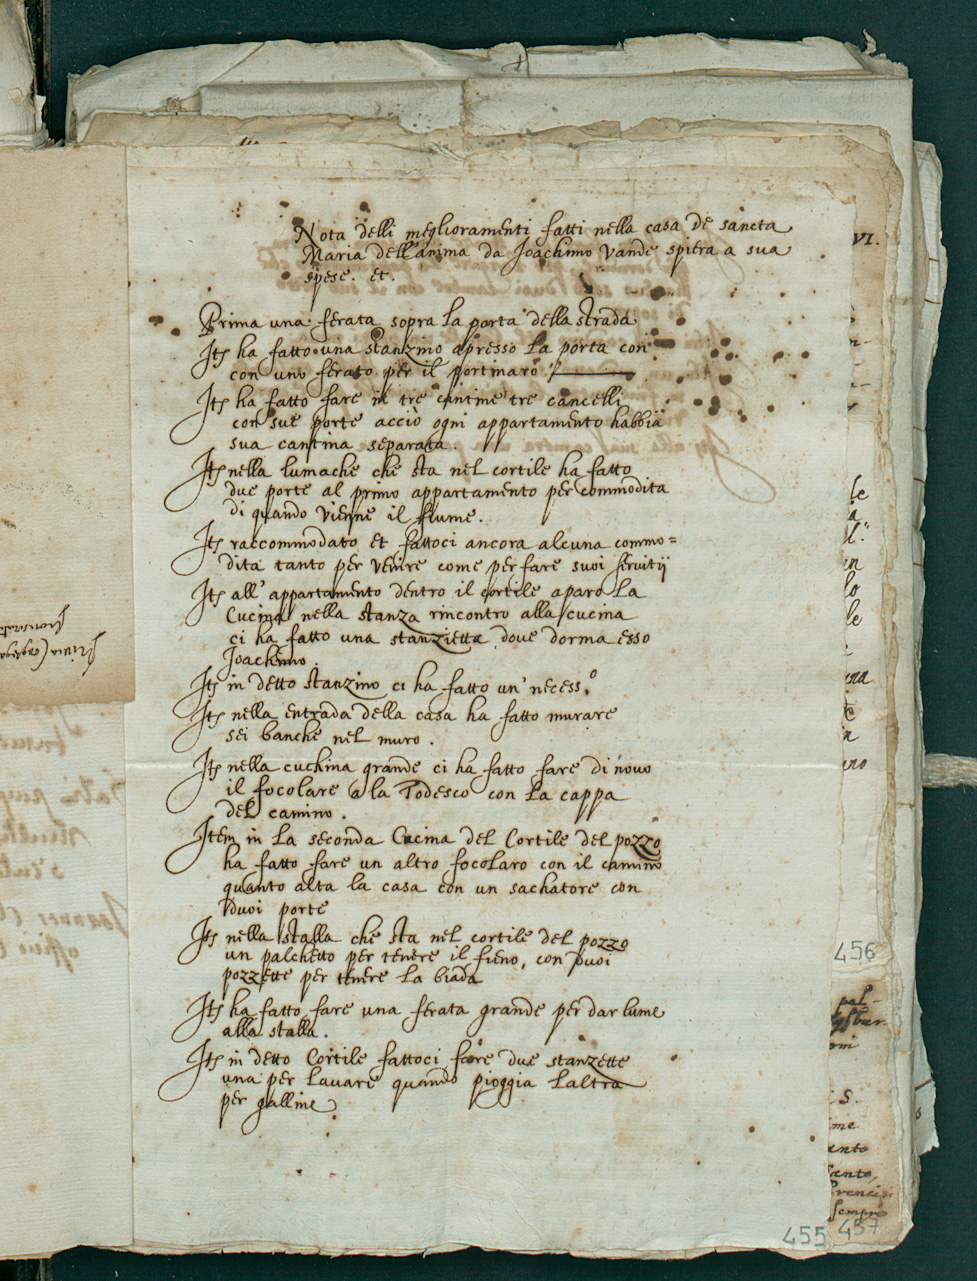 Nota delli meglioramenti fatti nella casa de sancta
Maria dell'anima da Joachimo Vande spiera a sua
spese. et.
Prima una ferata sopra la porta della strada
Itę ha fatto una stanzino apresso la porta con
con uno ferato per il portinaro
Itę ha fatto fare in tre cantine tre cancelli
con sue porte acciò ogni appartamento habbia
sua cantina separata.
Itę nella lumache che sta nel cortile ha fatto
due porte al primo appartamento per commodita
di quando vienne il fiume.
Itę raccommodato et fattoci ancora alcuna commo=
dita tanto per venire come per fare suoi servitij
Itę all' appartamento dentro il cortile aparo La
Cucina nella stanza rincontro alla cucina
ci ha fatto una stanzietta dove dorma esso
Joachimo.
Itę in detto stanzino ci ha fatto un' necess.º
Itę nella entrada della casa ha fatto murare
sei banche nel muro.
Itę nella cuchina grande ci ha fatto fare di novo
il focolare a la Todesco con la cappa
del camino.
Item in La seconda Cucina del Cortile del pozzo
ha fatto fare un altro focolaro con il camino
quanto alta la casa con un sachatore con
duoi porte
Itę nella stalla che sta nel cortile del pozzo
un palchetto per tenere il fieno, con duoi
pozzette per tenere la biada
Itę ha fatto fare una ferata grande per dar lume
alla stalla.
Itę in detto Cortile fattoci fare due stanzette
una per lavare quando pioggia l'altra
per galline
VI.
456
455
457